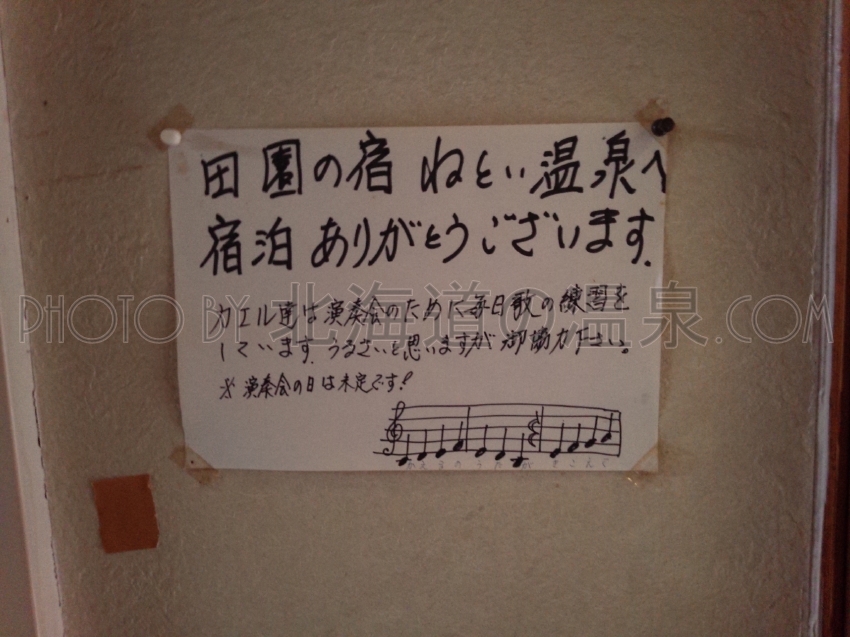 田園の宿 ねとい温泉へ
宿泊ありがとうございます.
カエル達は演奏会のために毎日歌の練習を
しています.うるさいと思いますが御協力下さい。
※演奏会の日は未定です!
かえるのうたが
PHOTO BY 北海道の温泉.COM